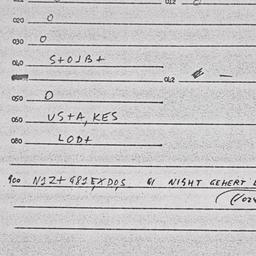 012
020 0
030 0
040 S+OJB+
042 —
050 0
060 US+A, KES
080 LOD+
900 N1Z+ G81EXDOS 61 NIGHT GEHERT